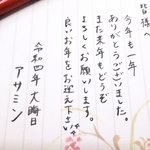 皆様へ
今年も一年
ありがとうございました。
また来年もどうぞ
よろしくお願いします。
良いお年をお迎え下さい。
令和四年 大晦日
アサミン